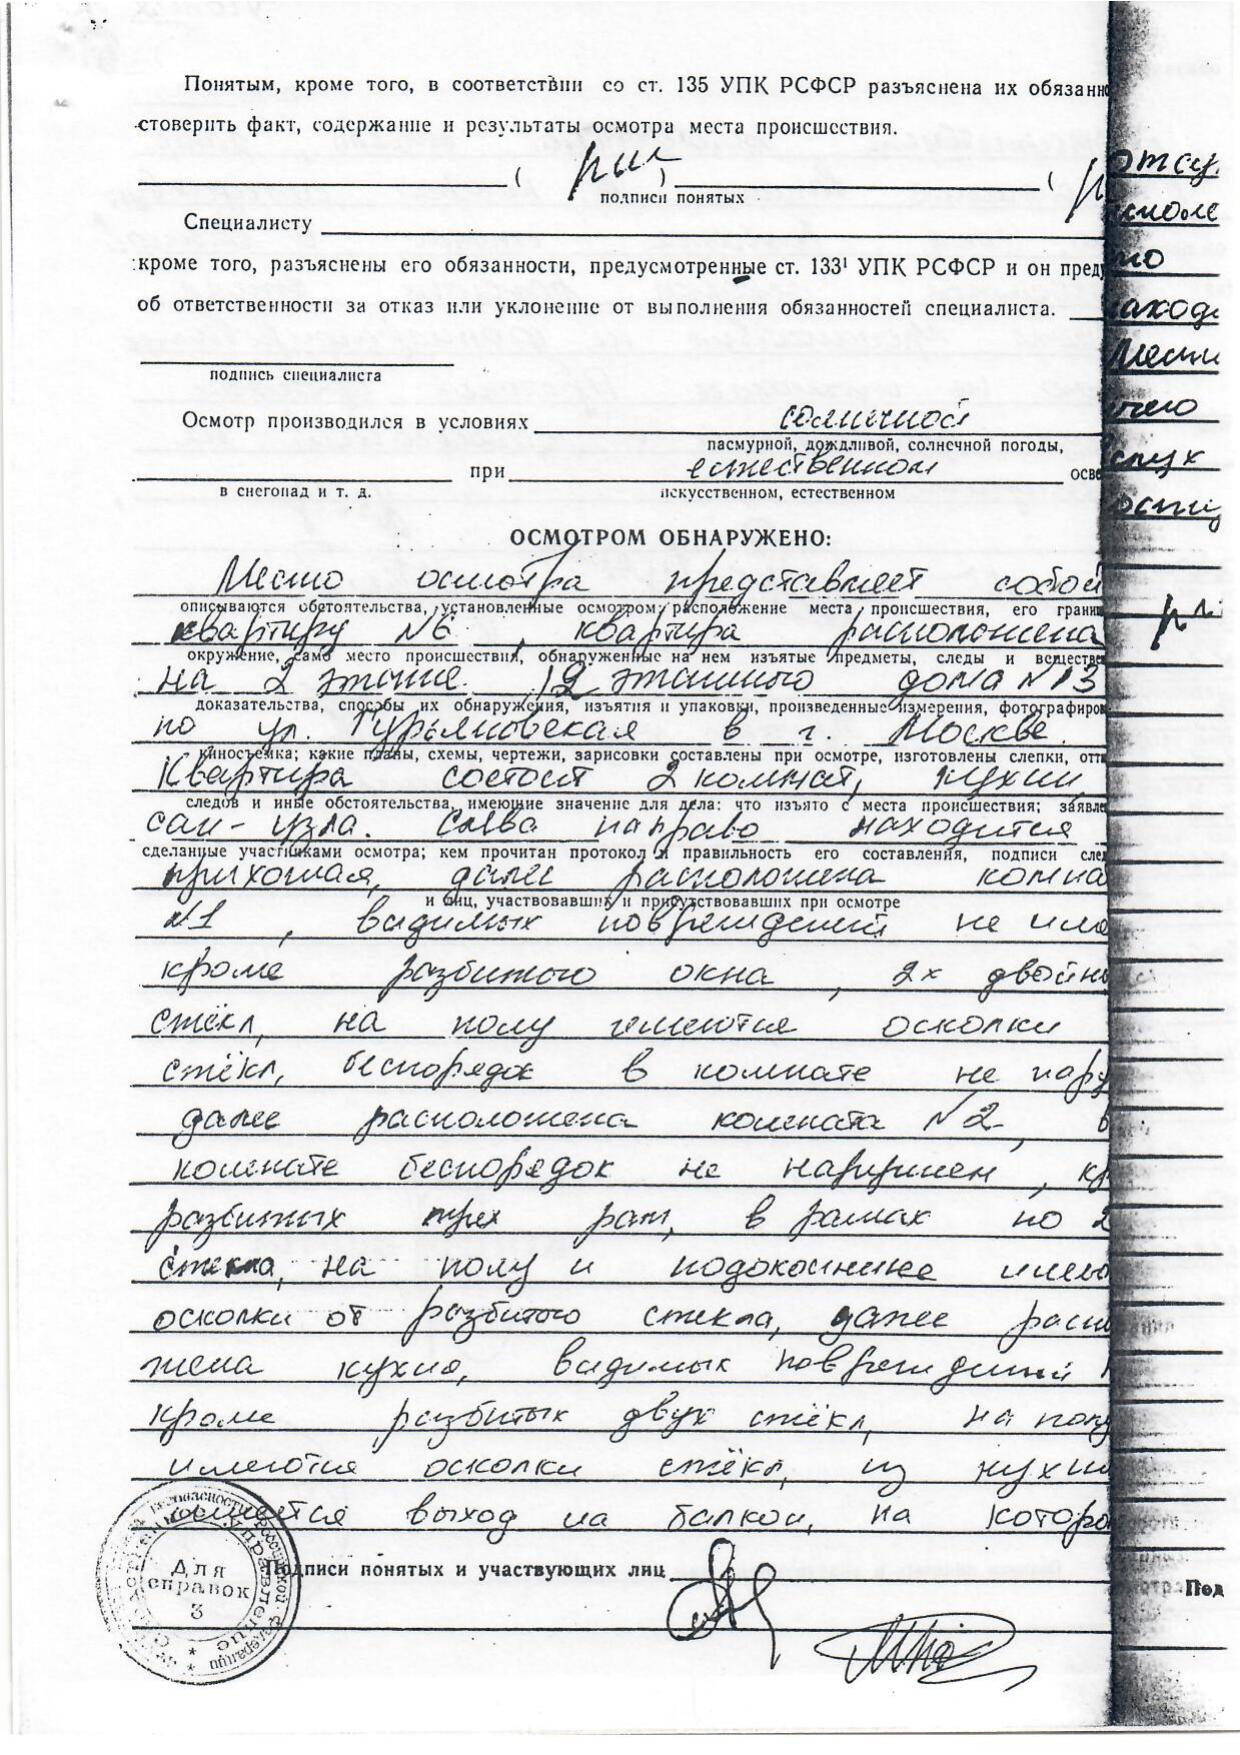 Понятым, кроме того, в соответствии со ст. 135 УПК РСФСР разъяснена их обязанн
стоверить факт, содержание и результаты осмотра места происшествия.
подписи понятых
Специалисту
кроме того, разъяснены его обязанности, предусмотренные ст. 133¹ УПК РСФСР и он пред
об ответственности за отказ или уклонение от выполнения обязанностей специалиста.
подпись специалиста
Осмотр производился в условиях солнечной
пасмурной, дождливой, солнечной погоды,
при естественном осве
в снегопад и т. д. искусственном, естественном
ОСМОТРОМ ОБНАРУЖЕНО:
Место осмотра представляет собой
описываются обстоятельства, установленные осмотром; расположение места происшествия, его грани
квартиру №6, квартира расположена
окружение, само место происшествия, обнаруженные на нем изъятые предметы, следы и веществе
на 2 этаже 12 этажного дома №13
доказательства, способы их обнаружения, изъятия и упаковки, произведенные измерения, фотографиров
по ул. Гурьяновская в г. Москве.
киносъемка; какие планы, схемы, чертежи, зарисовки составлены при осмотре, изготовлены слепки, отти
Квартира состоит 2 комнат, кухни,
следов и иные обстоятельства, имеющие значение для дела: что изъято с места происшествия; заявле
сан-узла. Слева направо находится
сделанные участниками осмотра; кем прочитан протокол и правильность его составления, подписи след
прихожая, далее расположена комна
и лиц, участвовавших и присутствовавших при осмотре
№1, видимых повреждений не име
кроме разбитого окна, 2х двойны
стёкл, на полу имеются осколки
стёкл, беспорядок в комнате не нару
далее расположена комната №2, в
комнате беспорядок не нарушен, кр
разбитых трех рам, в рамах по 2
стекла, на полу и подоконнике имею
осколки от разбитого стекла, далее распо
жена кухня, видимых повреждений н
кроме разбитых двух стёкл, на полу
имеются осколки стёкл, из кухни
имеется выход на балкон, на которо
Подписи понятых и участвующих лиц
Для
справок
3
отсу
но
наход
Под